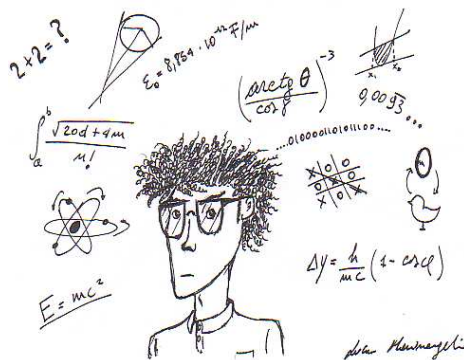 2+2=?
ε₀ = 8,854 · 10⁻¹² F/m
(arctg θ / cos φ)⁻³
x₁ x₂
0,0093...
∫ₐᵇ √(20d + 4m) / n!
....010000110101100....
X O O
X O X
X O
E = mc²
Δy = h/mc (1 - cos φ)